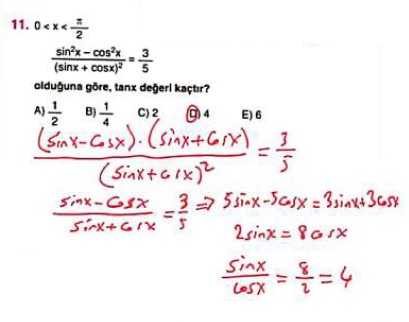 11. 0 < x < π/2
(sin²x – cos²x)/(sinx + cosx)² = 3/5
olduğuna göre, tanx değeri kaçtır?
A) 1/2 B) 1/4 C) 2 D) 4 E) 6
(Sinx-Cosx).(Sinx+Cosx)/(Sinx+Cosx)² = 3/5
Sinx-Cosx/Sinx+Cosx = 3/5 ⇒ 5sinx-5Cosx=3sinx+3Cosx
2sinx = 8Cosx
Sinx/Cosx = 8/2 = 4